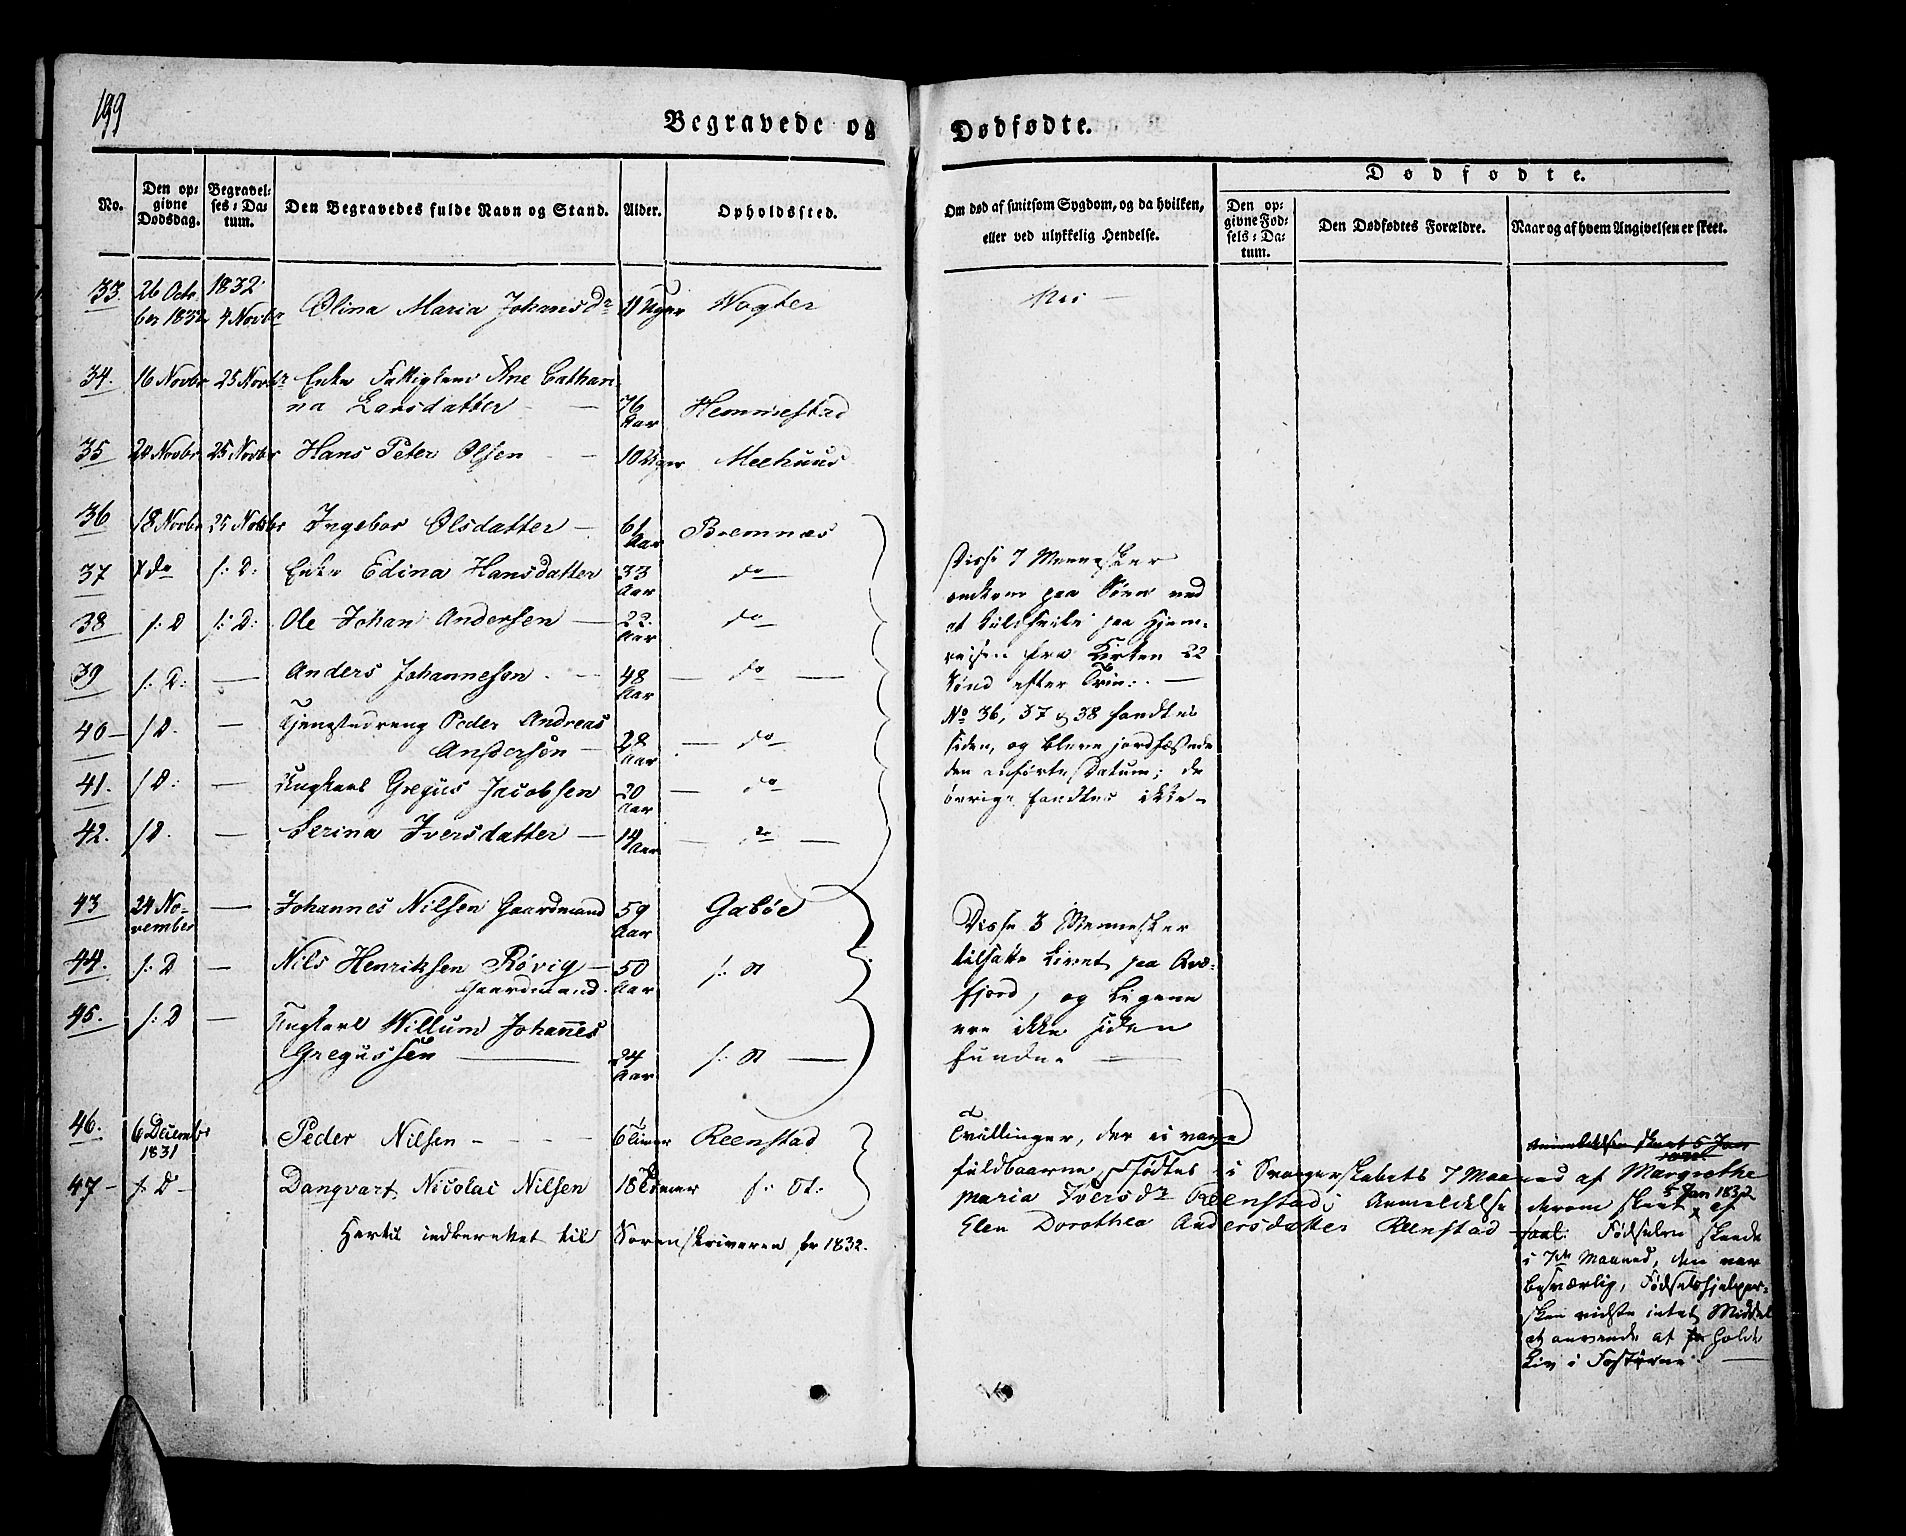 199
Begravede og Dødfødte.
No.
Den opgivne Dødsdag.
Begravelses-Datum.
Den Begravedes fulde Navn og Stand.
Alder.
Opholdssted.
Om død af smitsom Sygdom, og da hvilken,
eller ved ulykkelig Hendelse.
Dødfødte.
Den opgivne Fødsels-Datum.
Den Dødfødtes Forældre.
Naar og af hvem Angivelsen er skeet.
33. 26 Octbr 1832 1832 4 Novbr Olina Maria Johansdr 11 Uger Vogter Nei
34. 16 Novbr 25 Novbr Enke Fattiglem Ane Cathanna Larsdatter 76 Aar Hemmestad
35 20 Novbr 25 Novbr Hans Peter Olsen 10 Uger Meehuus
36 18 Novbr 25 Novbr Ingebor Olsdatter 61 Aar Bremnæs
37 do f: D: Enke Edina Hansdatter 33 Aar do
38 f: D f: D: Ole Johan Andersen 22 Aar do
39 f: D: Anders Johannesen 48 Aar do
40 f D. Tjenestedreng Peder Andreas Andersen 28 Aar do
41. f D: Ungkarl Gregus Jacobsen 20 Aar do
42. f D. Serina Iversdatter 14 Aar do
Disse 7 Mennesker
omkom paa Søen ved
at kuldseile paa Hjem-
reisen fra Kirken 22
Sønd efter Trin:
No 36, 37 og 38 fandtes
siden, og bleve jordfæstede
den anførte Datum; de
øvrige fandtes ikke
43 24 November Johannes Nilsen Gaardmand 59 Aar Gabøe
44. f: D Nils Henriksen Røvig Gaardmand. 50 Aar f: St
45. f: D Ungkarl Willum Johannes Gregussen 24 Aar f: St
Disse 3 Mennesker
tilsatte Livet paa Qvæ-
fjord, og Ligene
ere ikke siden
fundne
46. 6 Decembr 1831 Peder Nilsen 6 Timer Reenstad
47 f: D Danqvart Nicolai Nilsen 18 Timer f: St:
Tvillinger, der ei vare
fuldbaarne, fødtes i Svangerskabets 7 Maaned af Margrethe
Maria Iversdr Reenstad; Anmeldelse derom skeet 5 Jan 1832 af
Elen Dorothea Andersdatter Reenstad
Anmeldelsen skeet 5 Jan
1832
Fødselen skeede
i 7de Maaned, den var
besværlig, Fødselshjelper-
sken vidste intet Middel
at anvende at holde
Liv i Fosterne.
Hertil indberettet til Sorenskriveren for 1832.